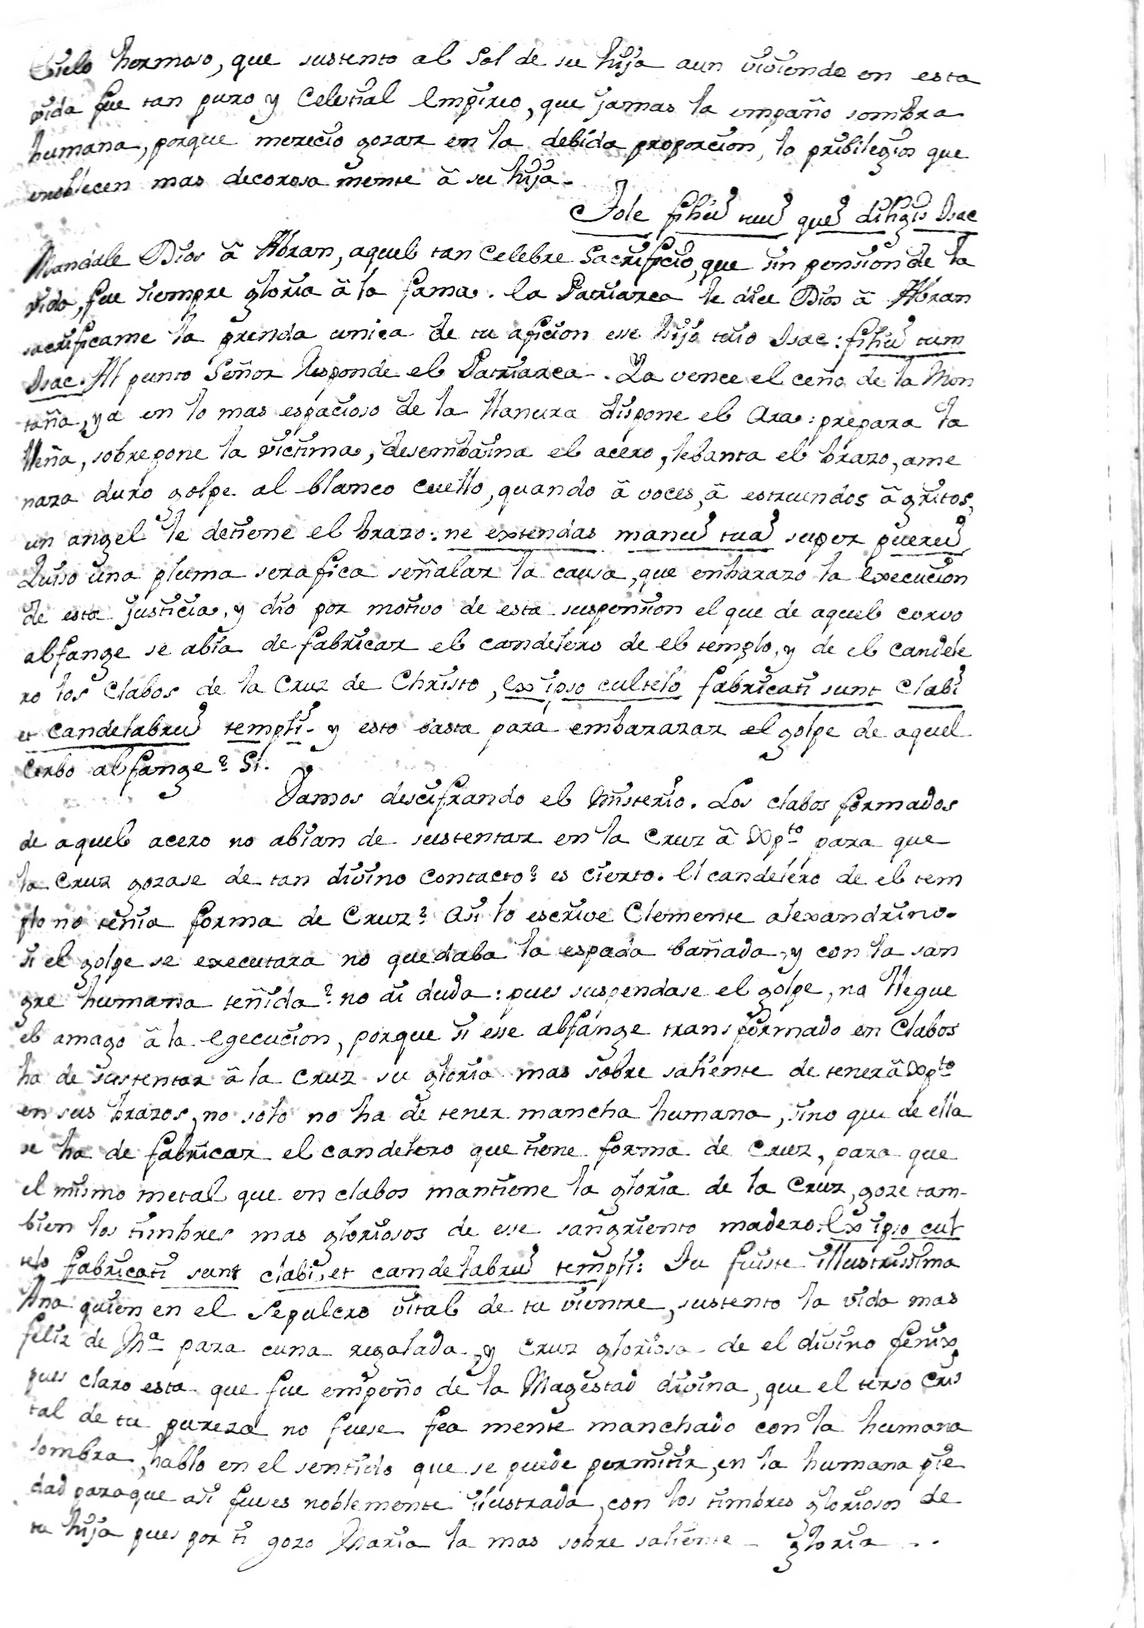 Cielo hermoso, que sustento al Sol de su hija aun viviendo en esta
vida fue tan puro y Celestial Empireo, que jamas la empaño sombra
humana, porque merecio gozar en la debida proporcion, lo pribilegios que
enoblecen mas decorosa mente â su hija.
Tole filiũ tuũ quẽ diligis Isac
Mandale Dios â Abran, aquel tan Celebre Sacrificio, que sin pension de la
vida, fue siempre gloria â la fama. la Patriarca le dice Dios â Abran
sacrificame la prenda unica de tu aficion esse hijo tuio Isac: filiũ tum
Isac. Al punto Señor Responde el Patriarca. Ya vence el ceño de la Mon
taña, ya en lo mas espacioso de la llanura dispone el Ara: prepara la
lleña, sobrepone la victima, desembaina el acero, lebanta el brazo, ame
naza duro golpe al blanco cuello, quando â voces, â estruendos â gritos,
un angel le detiene el brazo: ne extendas manũ tuã super puerũ
Quiso una pluma serafica señalar la causa, que enbarazo la Execucion
de esta justicia, y dio por motivo de esta suspension el que de aquel corvo
alfange se abia de fabricar el candelero de el templo, y de el candele
ro los Clabos de la Cruz de Christo, Ex ipso cultelo fabricati sunt Clabi
et candelabrũ templi. y esto basta para embarazar el golpe de aquel
Corbo alfange? Si.
Vamos descifrando el Misterio. Los clabos formados
de aquel acero no abian de sustentar en la Cruz â Xpto para que
la Cruz gozase de tan divino contacto? es cierto. El candelero de el tem
plo no tenia forma de Cruz? Asi lo escrive Clemente alexandrino.
si el golpe se executara no quedaba la espada bañada, y con la san
gre humana teñida? no ai duda: pues suspendase el golpe, no llegue
el amago â la egecucion, porque si esse alfange transformado en Clabos
ha de sustentar â la Cruz su gloria mas sobre saliente de tener â Xpto
en sus brazos, no solo no ha de tener mancha humana, sino que de ella
se ha de fabricar el candelero que tiene forma de Cruz, para que
el mismo metal que en clabos mantiene la gloria de la Cruz, goze tam-
bien los timbres mas gloriosos de esse sangriento madero: Ex ipso cul
telo fabricati sunt clabi, et candelabrũ templi: Tu fuiste illustrissima
Ana quien en el Sepulcro vital de tu vientre, sustento la vida mas
feliz de Ma para cuna regalada, y Cruz gloriosa de el divino fenix,
pues claro esta que fue empeño de la Magestad divina, que el terso Cris
tal de tu pureza no fuese fea mente manchado con la humana
sombra, hablo en el sentido que se puede permitir, en la humana pie
dad paraque asi fueses noblemente ilustrada, con los timbres gloriosos de
tu hija pues por ti gozo Maria la mas sobre saliente gloria . .